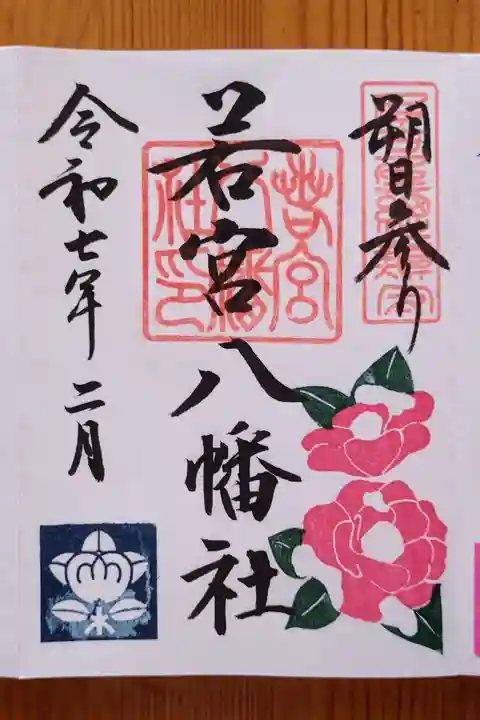 朔日参り
若宮八幡社
若宮八幡社印
令和七年 二月